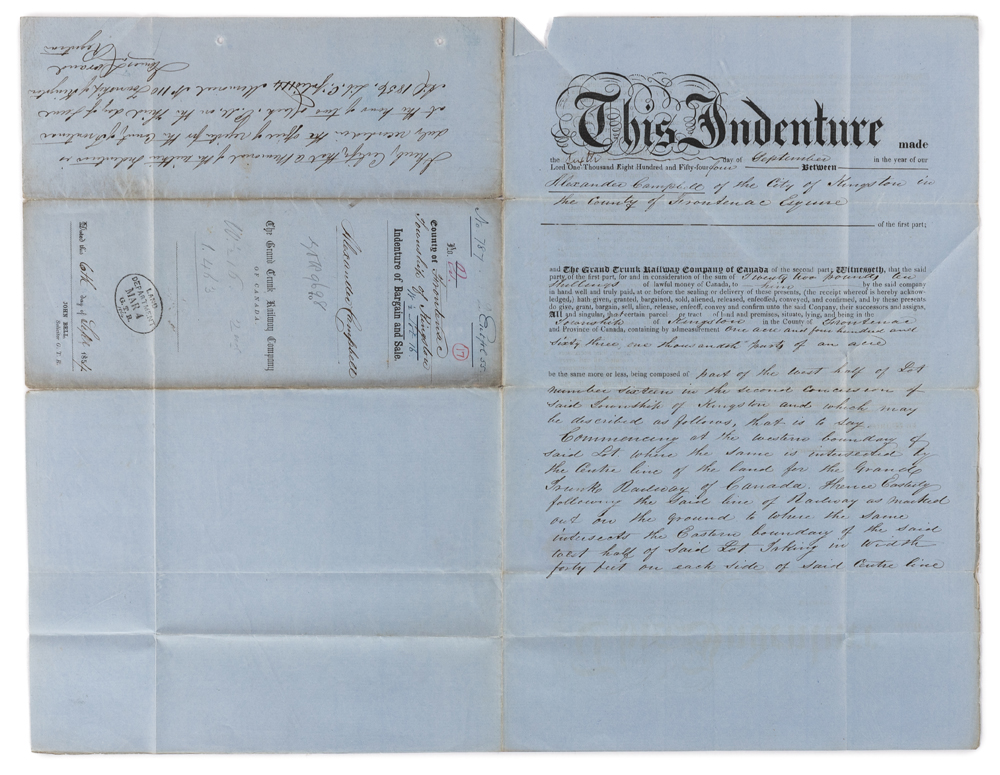 This Indenture made
the Sixth day of September in the year of our
Lord One Thousand Eight Hundred and Fifty-four Between
Alexander Campbell of the City of Kingston in
the County of Frontenac Esquire
of the first part;
and The Grand Trunk Railway Company of Canada of the second part, Witnesseth, that the said
party of the first part, for and in consideration of the sum of Twenty two pounds ten
Shillings of lawful money of Canada, to him by the said company
in hand well and truly paid, at or before the sealing or delivery of these presents, (the receipt whereof is hereby acknow-
ledged,) hath given, granted, bargained, sold, aliened, released, enfeoffed, conveyed, and confirmed, and by these presents
do give, grant, bargain, sell, alien, release, enfeoff, convey and confirm unto the said Company, their successors and assigns,
All and singular, that certain parcel or tract of land and premises, situate, lying, and being in the
Township of Kingston in the County of Frontenac
and Province of Canada, containing by admeasurement One acre and four hundred and
sixty three, one thousandth parts of an acre
be the same more or less, being composed of part of the West half of Lot
number sixteen in the second concession of
said Township of Kingston and which may
be described as follows, that is to say
Commencing at the western boundary of
said Lot where the same is intersected by
the Centre line of the land for the Grand
Trunk Railway of Canada. Thence Easterly
following the said line of Railway as marked
out on the ground to where the same
intersects the Eastern boundary of the said
West half of said Lot Taking in width
forty feet on each side of said Centre line
No 757
No.
17
County of Frontenac
Township of Kingston
W ½ 16
Indenture of Bargain and Sale.
Alexander Campbell
The Grand Trunk Railway Company
OF CANADA.
W ½ 16 2nd
1.463
LAND DEPARTMENT
MAR 4
G.T.R.
Dated this 6th day of Sept. 1854
JOHN BELL,
Solicitor G. T. R.
I hereby Certify that a Memorial of the within Indenture is
duly recorded in the office of register for the County of Frontenac
at the hour of two o'clock P.M. on the Third day of June
AD 1856. Lib. C folio Memorial No 110 Township of Kingston
Registrar